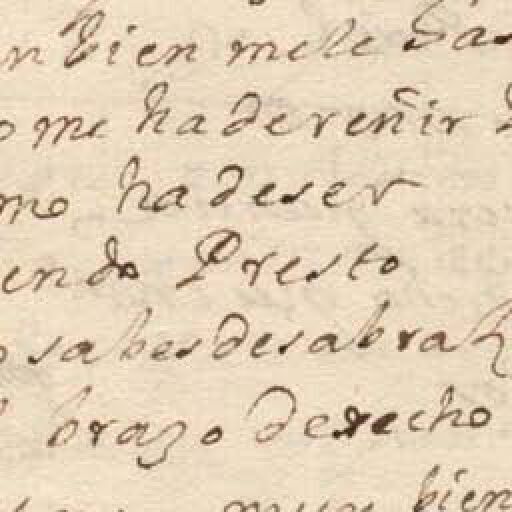 n bien mele has
o me ha de reñir
mo ha de ser
endo Presto
o sabes desabrah
brazo derecho
muy bien